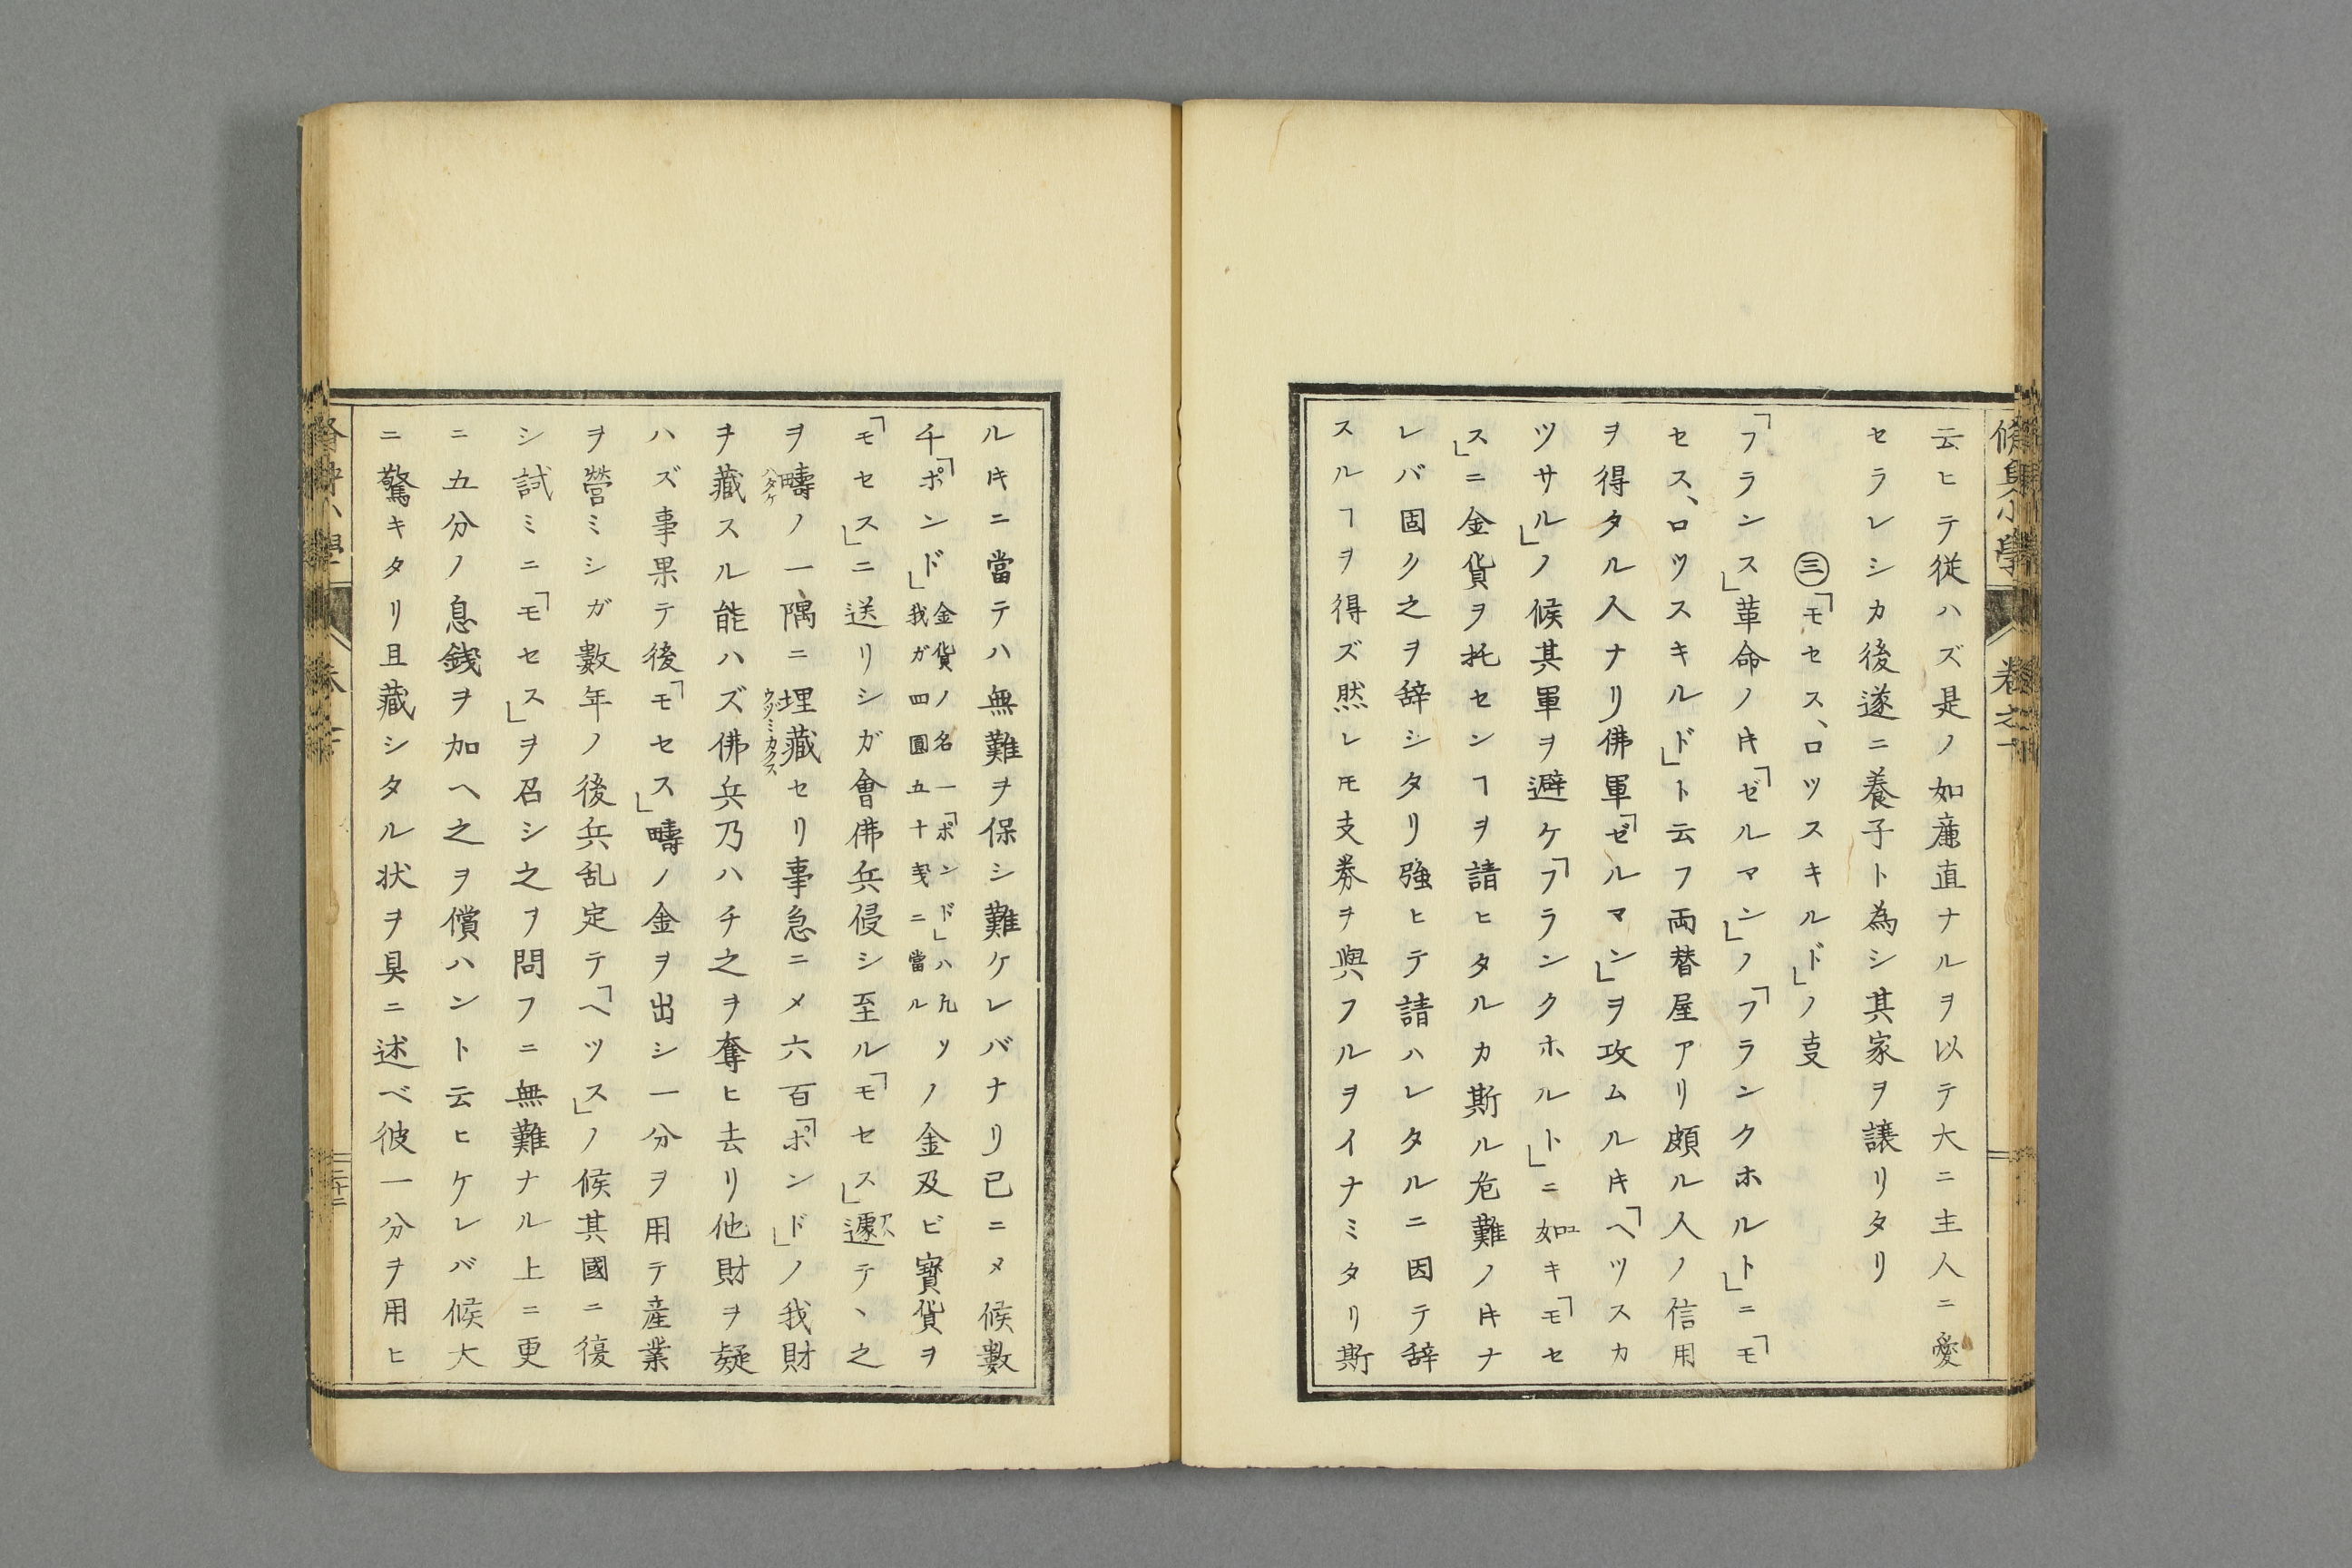 脩身小學 卷之一
云ヒテ従ハズ是ノ如廉直ナルヲ以テ大ニ主人ニ愛
セラレシカ後遂ニ養子ト為シ其家ヲ譲リタリ
㊂「モセス、ロツスキルド」ノ㕝
「フランス」革命ノキ「ゼルマン」ノ「フランクホルト」ニ「モ
セス、ロツスキルド」ト云フ両替屋アリ頗ル人ノ信用
ヲ得タル人ナリ佛軍「ゼルマン」ヲ攻ムルキ「ヘツスカ
ツサル」ノ候其軍ヲ避ケ「フランクホルト」ニ如キ「モセ
ス」ニ金貨ヲ托センヿヲ請ヒタルカ斯ル危難ノキナ
レバ固ク之ヲ辞シタリ強ヒテ請ハレタルニ因テ辞
スルヿヲ得ズ然レモ支券ヲ與フルヲイナミタリ斯
ルキニ當テハ無難ヲ保シ難ケレバナリ已ニメ候數
千「ポンド」金貨ノ名一「ポンド」ハ凡我ガ四圓五十戔ニ當ルソノ金及ビ寳貨ヲ
「モセス」ニ送リシガ會佛兵侵シ至ル「モセス」遽テヽ之
ヲ疇ハタケノ一隅ニ埋藏ウヅミカクスセリ事急ニメ六百「ポンド」ノ我財
ヲ藏スル能ハズ佛兵乃ハチ之ヲ奪ヒ去リ他財ヲ疑
ハズ事果テ後「モセス」疇ノ金ヲ出シ一分ヲ用テ産業
ヲ營ミシガ數年ノ後兵乱定テ「ヘツス」ノ候其國ニ復
シ試ミニ「モセス」ヲ召シ之ヲ問フニ無難ナル上ニ更
ニ五分ノ息銭ヲ加ヘ之ヲ償ハント云ヒケレバ候大
ニ驚キタリ且藏シタル状ヲ具ニ述ベ彼一分ヲ用ヒ